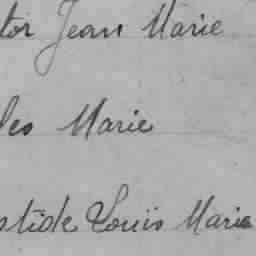 tor Jean Marie
les Marie
stide Louis Marie